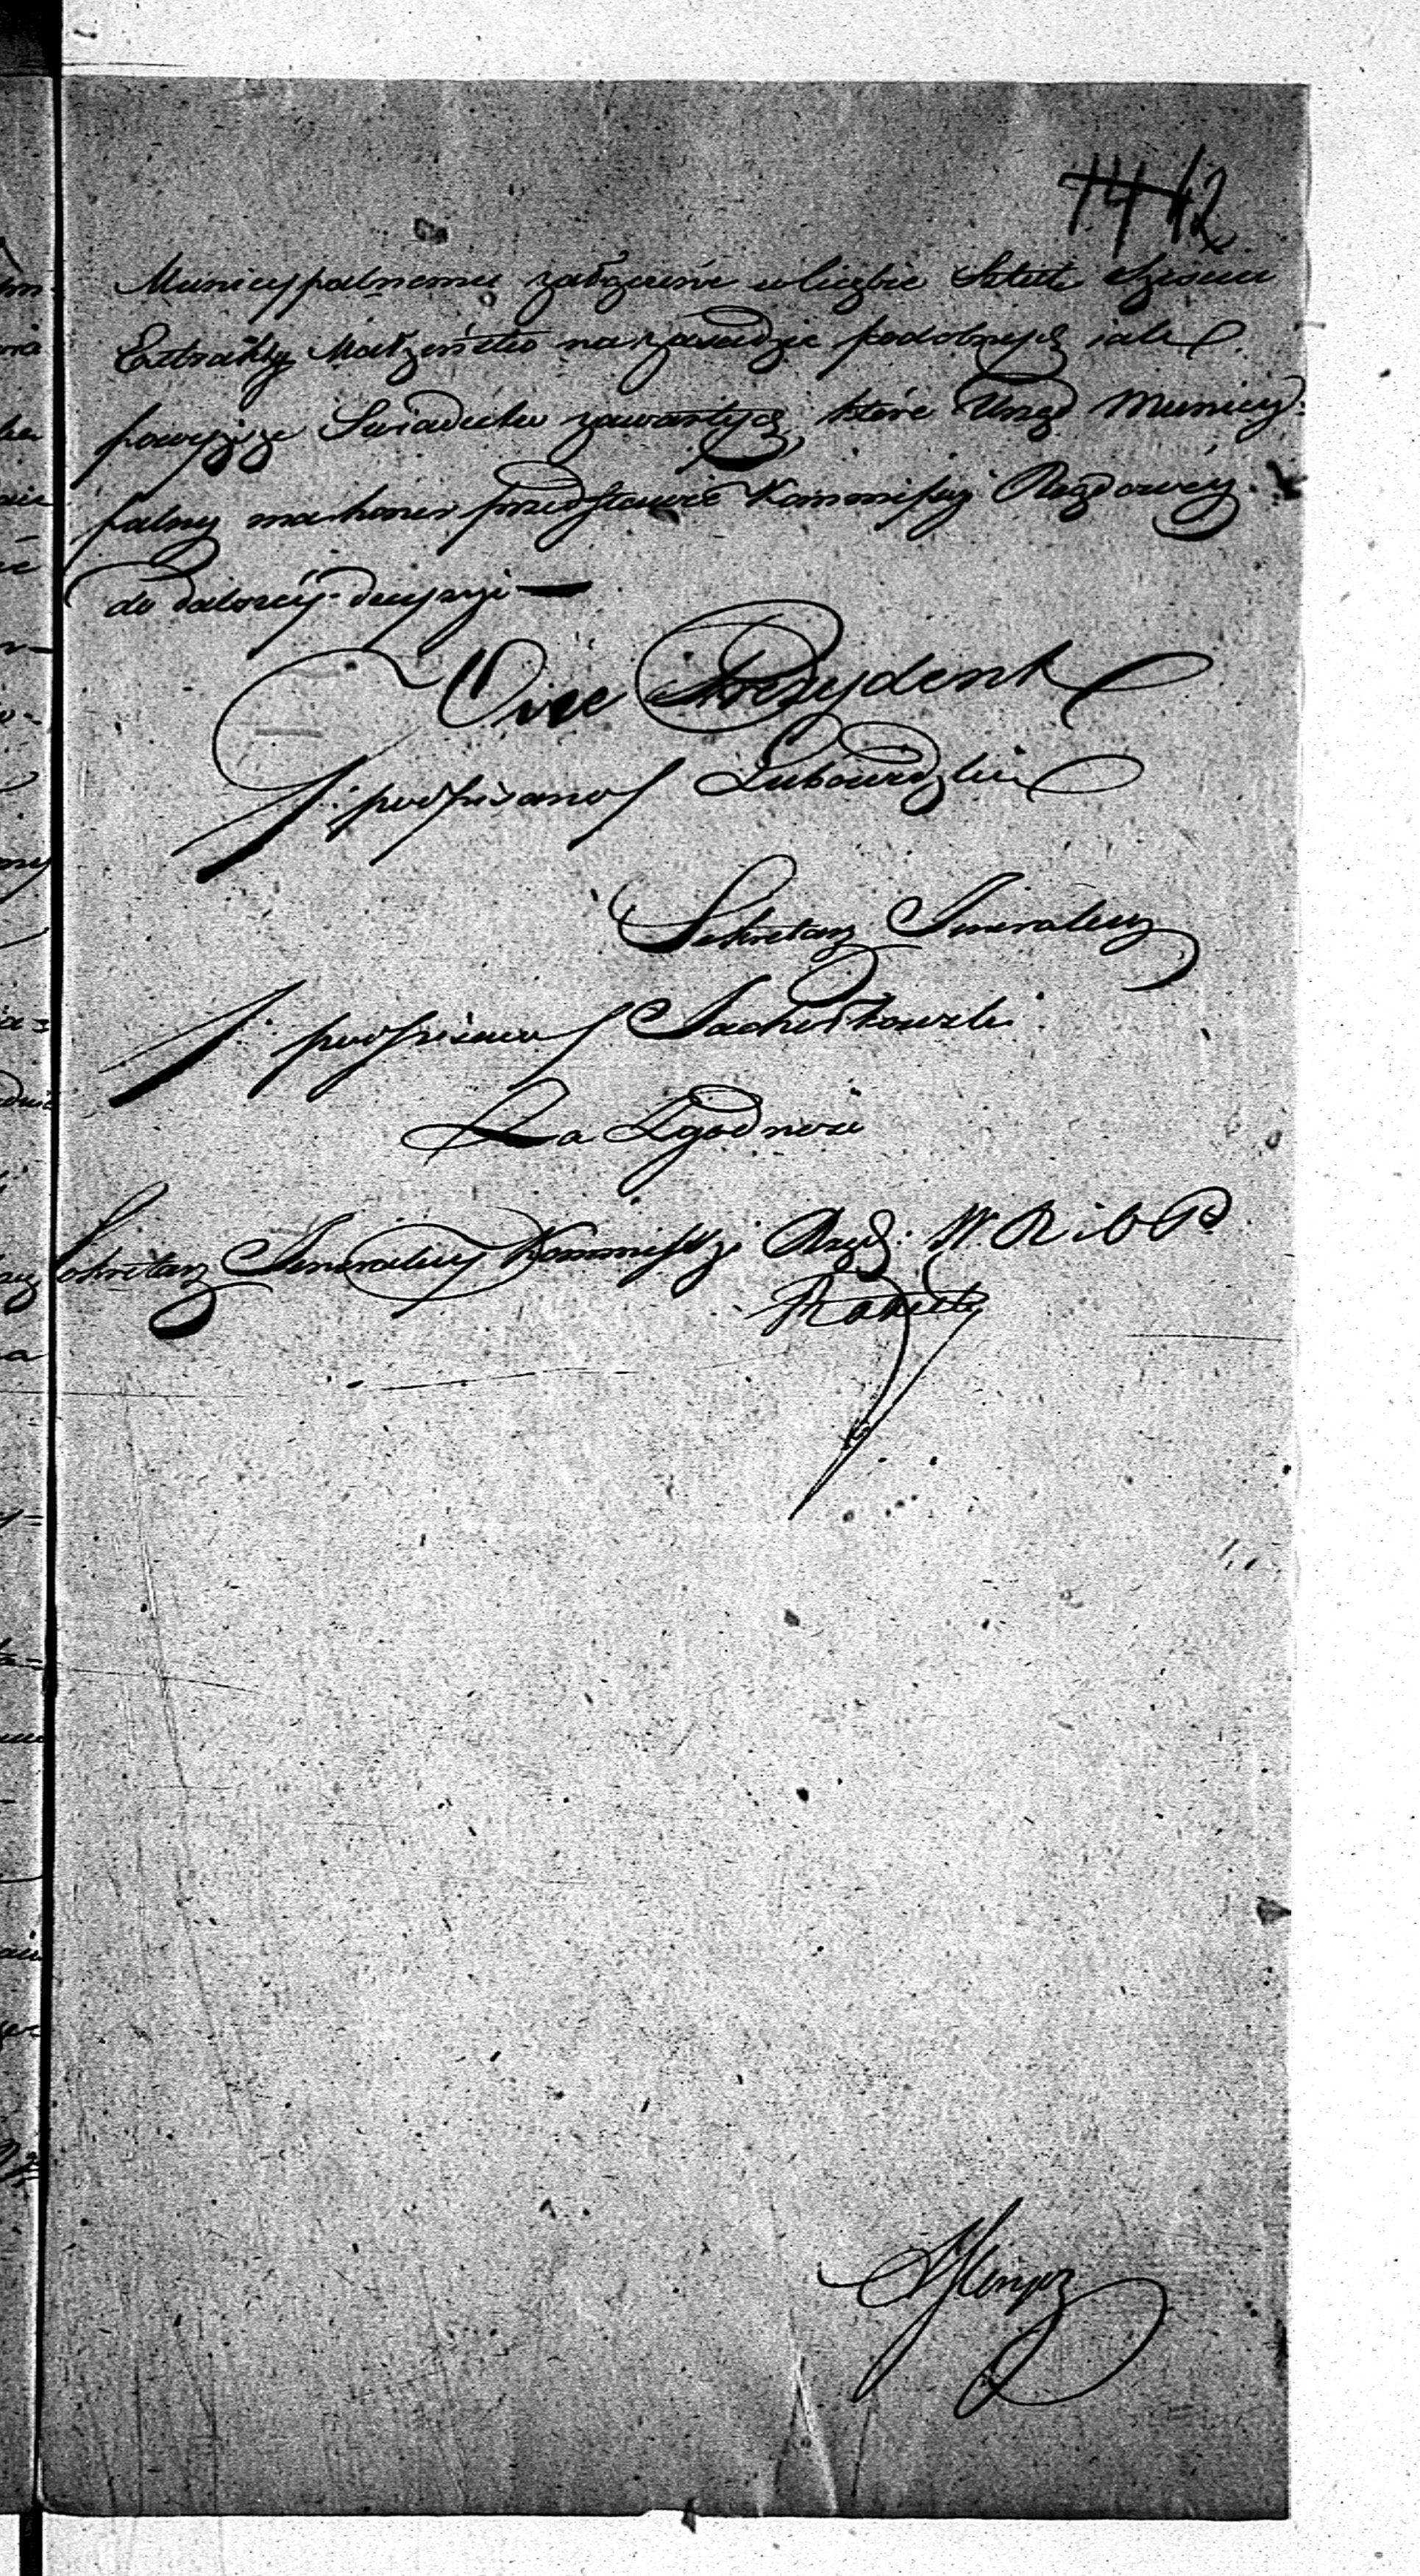 12
Municypalnemu załączone w liczbie Sztuk Sześciu
Extrakty Małżeństw na zasadzie podobnych jak
powyższe Świadectw zawartych, które Urząd Municy-
palny ma honor przedstawić Kommissyi Rządowéy
do dalszéy decyzyi —
Vice Prezydent
/: podpisano / Lubowidzki
Sekretarz Jeneralny
/: podpisano /
Za Zgodność
Sekretarz Jeneralny Kommissyi Rząd: W R i O P